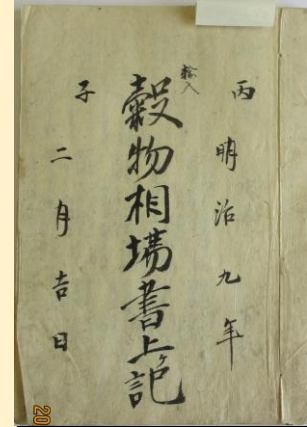 丙 明治九年
輸入
穀物相場書上ケ記
子 二月吉日
20